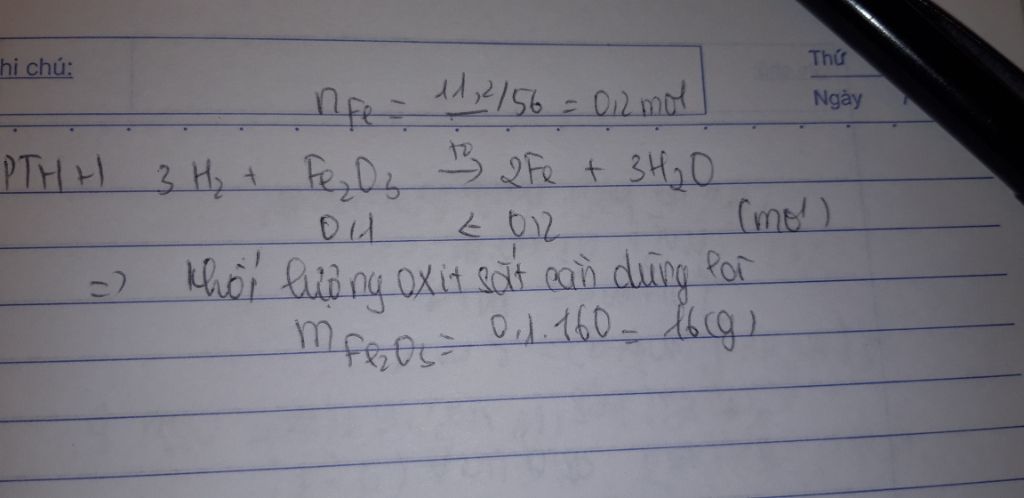 hi chú:
Thứ
Ngày
nFe = 11,2/56 = 0,2 mol
PTHH 3H₂ + Fe₂O₃ t° → 2Fe + 3H₂O
0,1 < 0,2 (mol)
=> Khối lượng oxit sắt cần dùng là
mFe₂O₃ = 0,1.160 = 16(g)